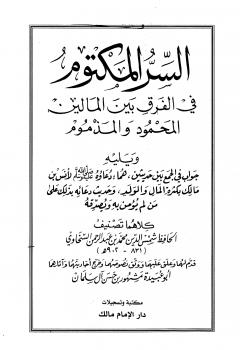 السر المكتوم
في الفرق بين المالين
المحمود والمذموم
ويليه
جواب في الجمع بين حديثين، هما: دعاؤه ﷺ لأنس بن
مالك بكثرة المال والولد، وحديث دعائه بذلك على
من لم يؤمن به ويصدقه
كلاهما تصنيف
الحافظ شمس الدين محمد بن عبد الرحمن السخاوي
(٨٣١ - ٩٠٢هـ)
قدم لهما وعلق عليهما ووثق نصوصهما وخرج أحاديثهما وآثارهما
أبو عبيدة مشهور بن حسن آل سلمان
مكتبة وتسجيلات
دار الإمام مالك